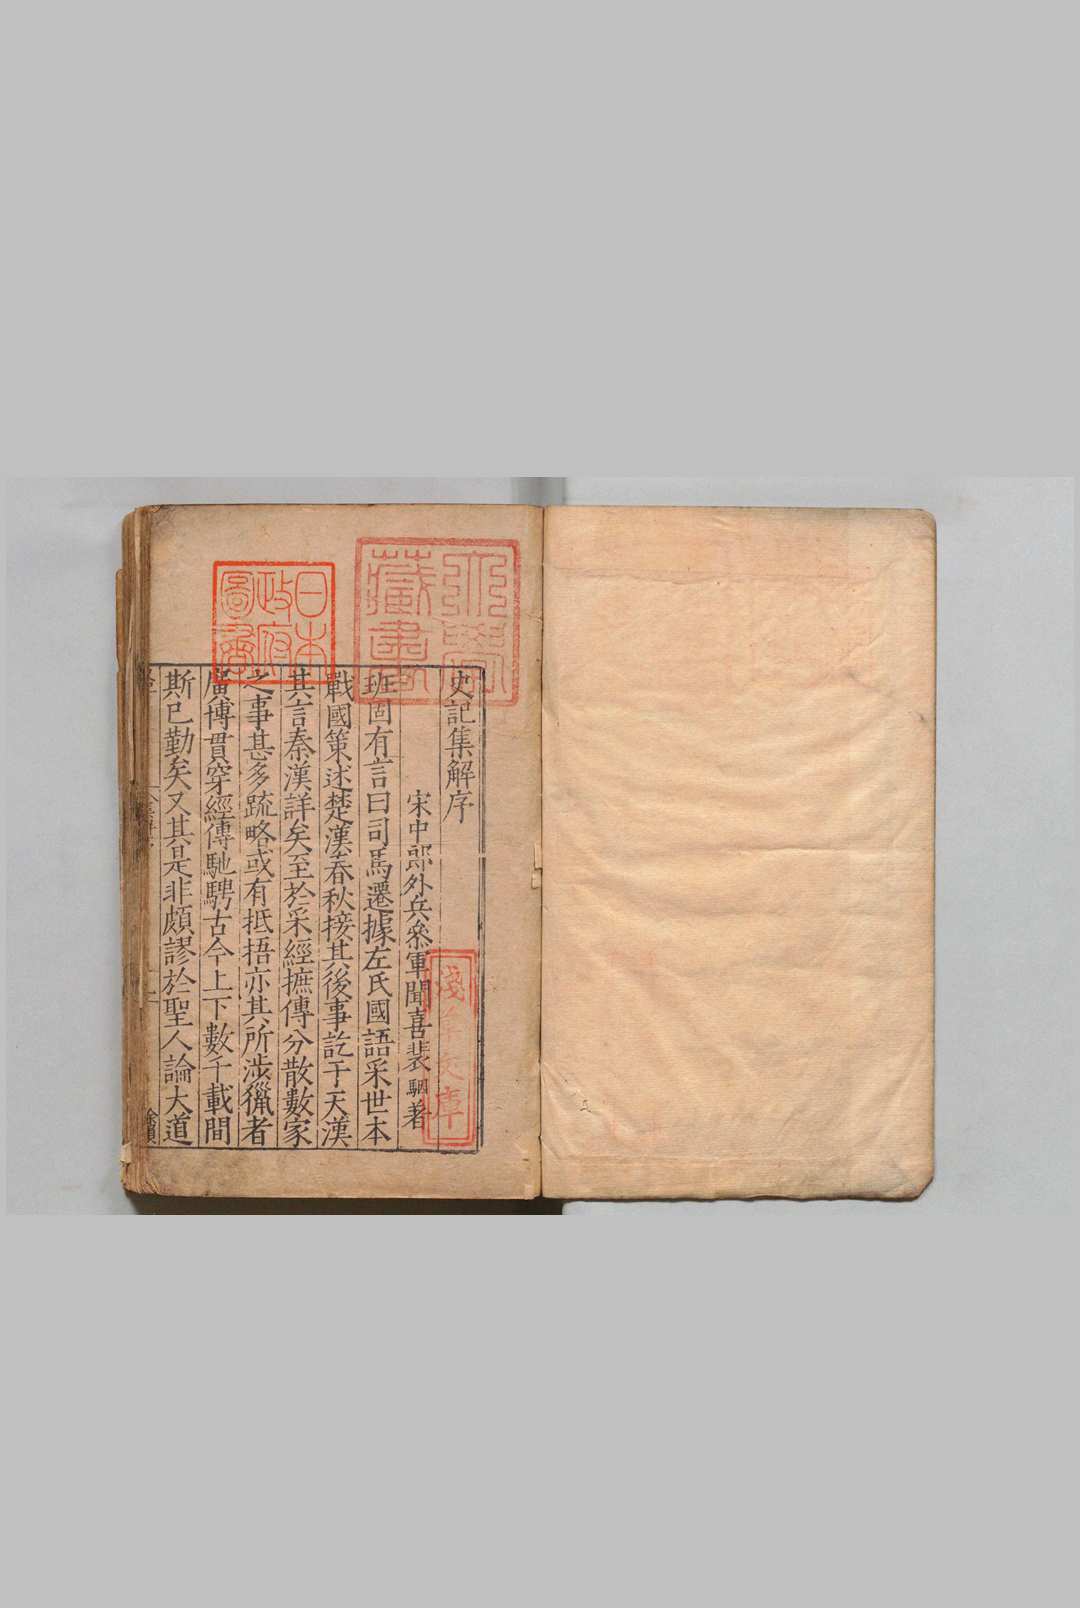 史記集解序
宋中郎外兵參軍聞喜裴駰著
班固有言曰司馬遷據左氏國語采世本
戰國策述楚漢春秋接其後事訖于天漢
其言秦漢詳矣至於采經摭傳分散數家
之事甚多疏略或有抵捂亦其所涉獵者
廣博貫穿經傳馳騁古今上下數千載間
斯已勤矣又其是非頗謬於聖人論大道
大學
藏書
日本
政府
圖書
淺草文庫